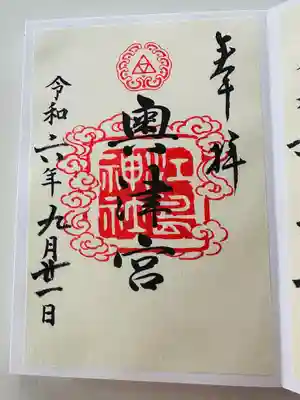 奉拝
奥津宮
江島
神社
令和六年九月廿一日